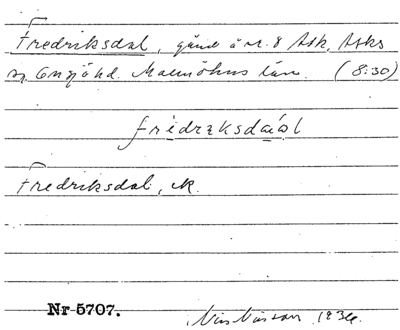 Fredriksdal, gård å nr. 8 Ask, Asks
sn. Onsjö hd. Malmöhus län. (8:30)
Fredriksdal, N.
Nr 5707.
Nils Nilsson 1934.